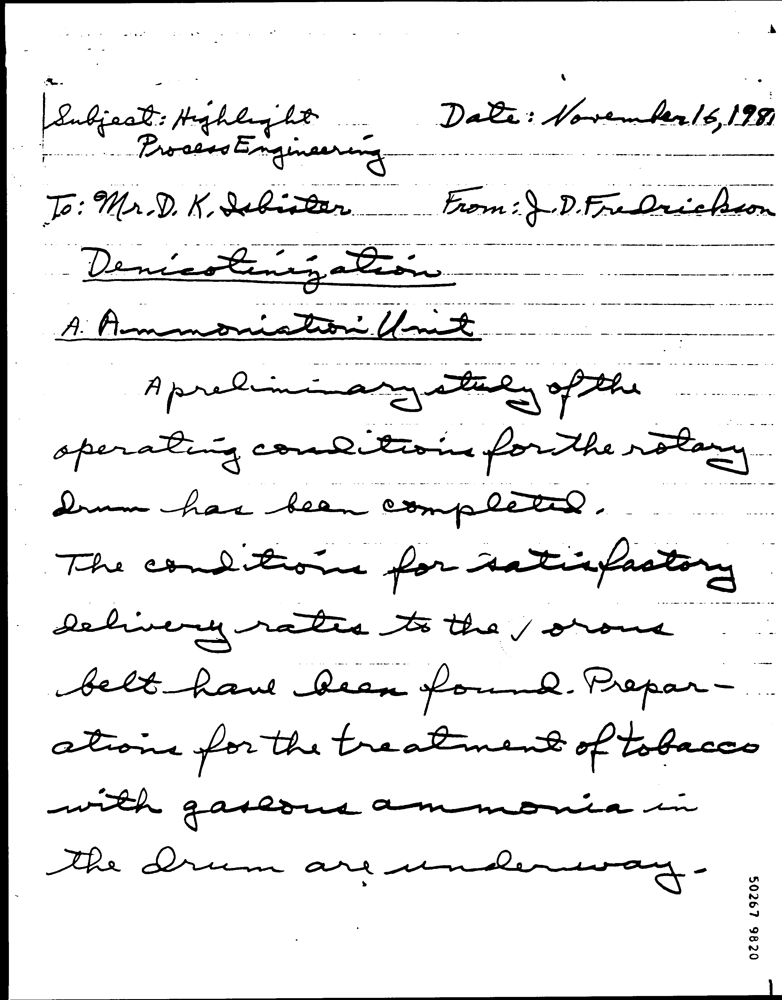 Subject: Highlight Date: November 16, 1981
Process Engineering
To: Mr. D. K. Isbister From: J. D. Fredrickson
Denicotinization
A. Ammoniation Unit
A preliminary study of the
operating conditions for the rotary
drum has been completed.
The conditions for satisfactory
delivery rates to the orous
belt have been found. Prepar-
ations for the treatment of tobacco
with gaseous ammonia in
the drum are underway.
50267 9820